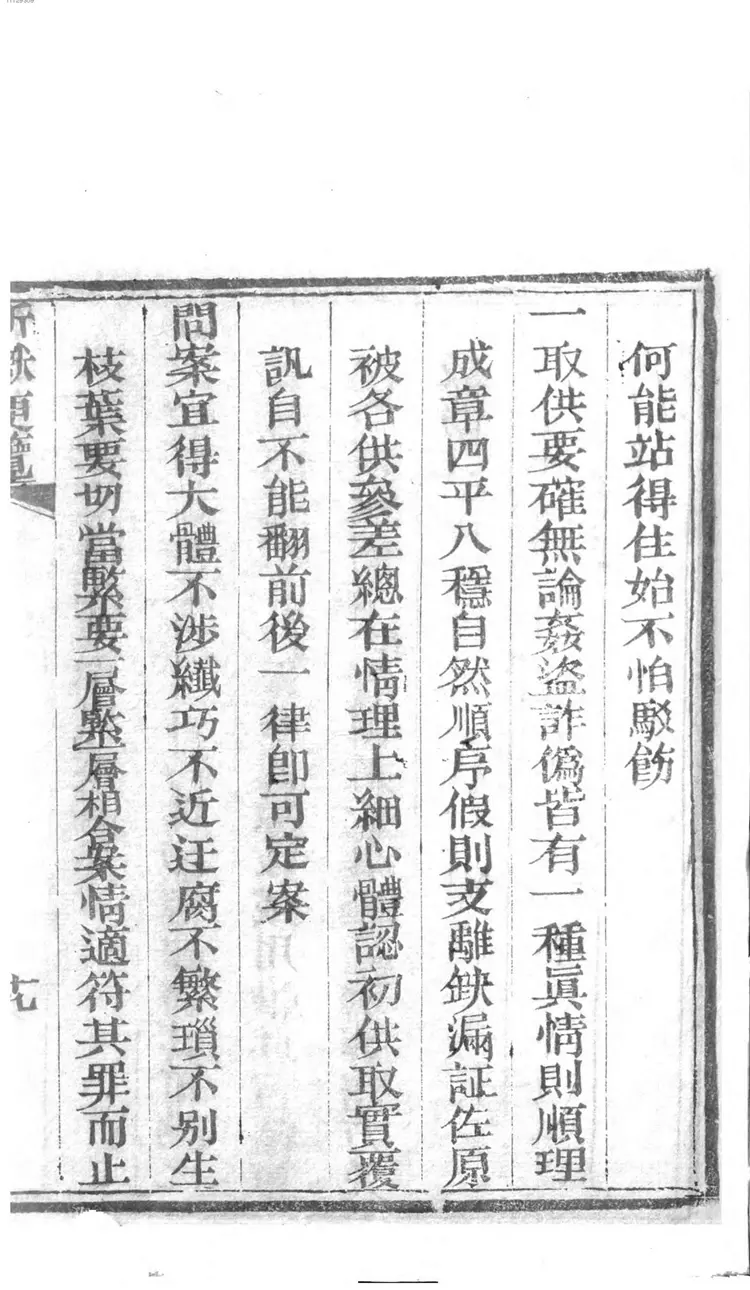 何能站得住始不怕駁飭
一取供要確無論姦盜詐僞皆有一種眞情則順理
成章四平八穩自然順序假則支離缺漏証佐原
被各供參差總在情理上細心體認初供取實覆
訊自不能翻前後一律卽可定案
問案宜得大體不涉纖巧不近迂腐不繁瑣不別生
枝葉要切當緊要一層緊一層相合案情適符其罪而止
便覽